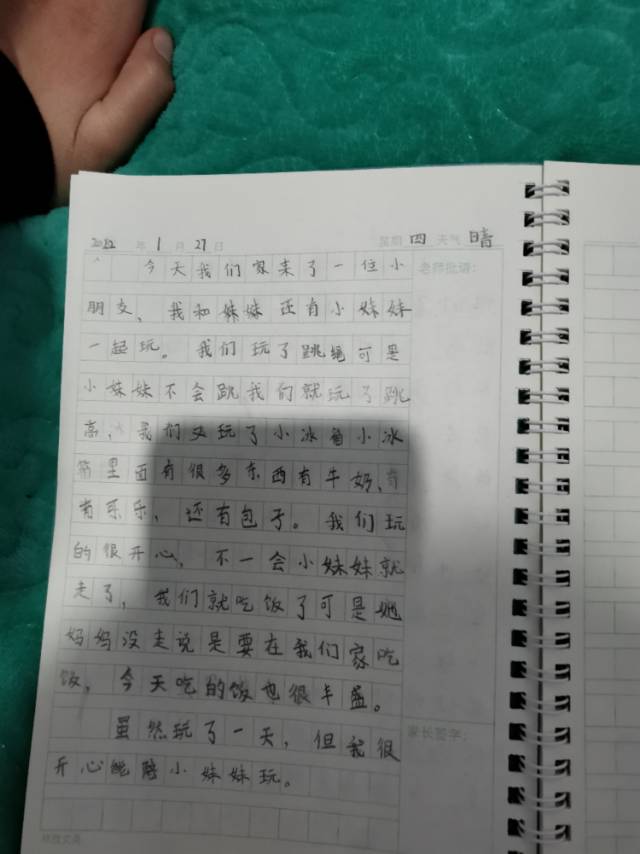 2022 年 1 月 27 日 星期 四 天气 晴
今天我们家来了一位小
老师批语:
朋友、我和妹妹还有小妹妹
一起玩。我们玩了跳绳可是
小妹妹不会跳我们就玩了跳
高、我们又玩了小冰箱小冰
箱里面有很多东西有牛奶、有
有乐乐、还有包子。我们玩
的很开心, 不一会小妹妹就
走了, 我们就吃饭了可是她
妈妈没走说是要在我们家吃
饭, 今天吃的饭也很丰盛。
虽然玩了一天, 但我很
家长签字:
开心能陪小妹妹玩。